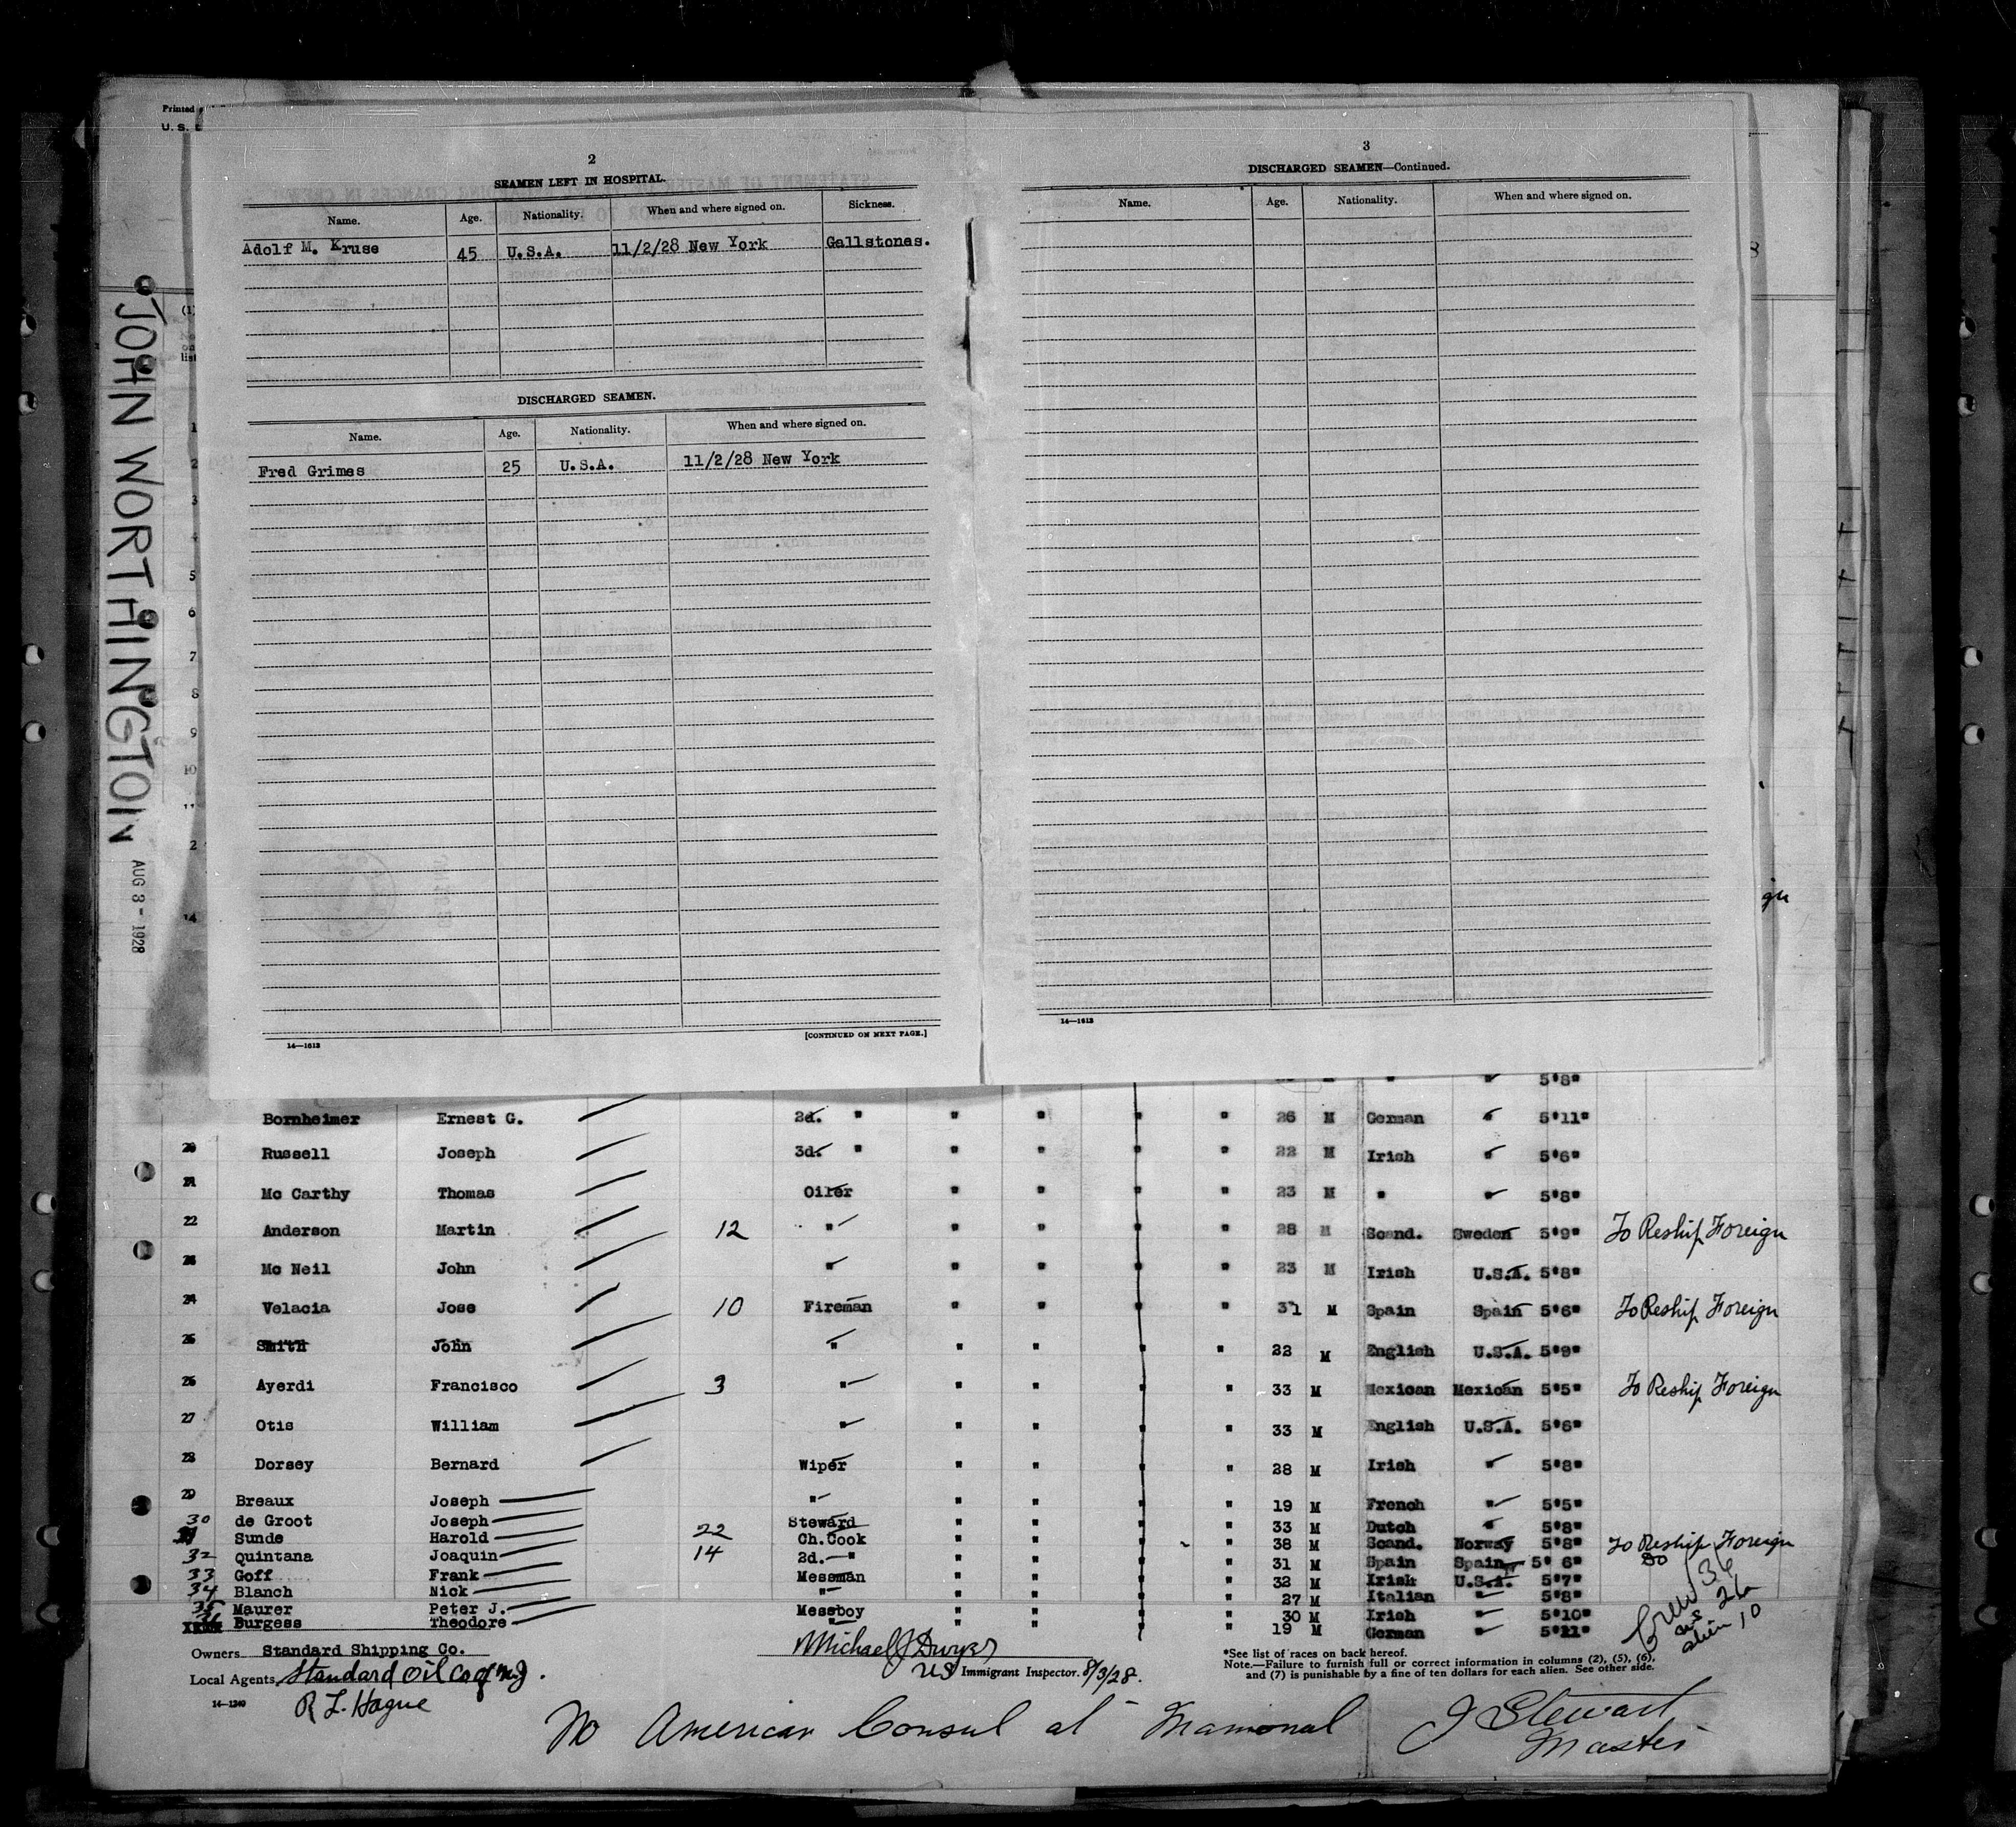 Printed
U. S.
JOHN WORTHINGTON
AUG 3 - 1928
2
SEAMEN LEFT IN HOSPITAL.
Name. Age. Nationality. When and where signed on. Sickness.
Adolf M. Kruse 45 U.S.A. 11/2/28 New York Gallstones.
DISCHARGED SEAMEN.
Name. Age. Nationality. When and where signed on.
Fred Grimes 25 U.S.A. 11/2/28 New York
14—1613
[CONTINUED ON NEXT PAGE.]
3
DISCHARGED SEAMEN—Continued.
Name. Age. Nationality. When and where signed on.
14—1613
(1)
list
1
2
3
4
5
6
7
8
9
10
11
2
14
gn
" 5'8"
Bornheimer Ernest G. 2d. " " " " " 26 M German " 5'11"
20 Russell Joseph 3d. " " " " " 22 M Irish " 5'6"
21 Mc Carthy Thomas Oiler " " " " 23 M " " 5'8"
22 Anderson Martin 12 " " " " " 28 M Scand. Sweden 5'9" To Reship Foreign
23 Mc Neil John " " " " " 23 M Irish U.S.A. 5'8"
24 Velacia Jose 10 Fireman " " " " 31 M Spain Spain 5'6" To Reship Foreign
25 Smith John " " " " " 22 M English U.S.A. 5'9"
26 Ayerdi Francisco 3 " " " " " 33 M Mexican Mexican 5'5" To Reship Foreign
27 Otis William " " " " " 33 M English U.S.A. 5'6"
28 Dorsey Bernard Wiper " " " " 28 M Irish " 5'8"
29 Breaux Joseph " " " " " 19 M French " 5'5"
30 de Groot Joseph Steward " " " " 33 M Dutch " 5'8"
31 Sunde Harold 22 Ch.Cook " " " " 38 M Scand. Norway 5'8" To Reship Foreign
32 Quintana Joaquin 14 2d. " " " " " 31 M Spain Spain 5' 6" Do
33 Goff Frank Messman " " " " 32 M Irish U.S.A. 5'7"
34 Blanch Nick " " " " " 27 M Italian " 5'8"
35 Maurer Peter J. Messboy " " " " 30 M Irish " 5'10"
36 Burgess Theodore " " " " " 19 M German " 5'11"
Crew 36
aus 26
alien 10
Owners Standard Shipping Co.
Local Agents Standard Oil Co of N.J.
14—1240
R L. Hague
Michael J Dwyer
US Immigrant Inspector. 8/3/28.
*See list of races on back hereof.
Note.—Failure to furnish full or correct information in columns (2), (5), (6),
and (7) is punishable by a fine of ten dollars for each alien. See other side.
No American Consul at Mamonal
J Stewart
Master